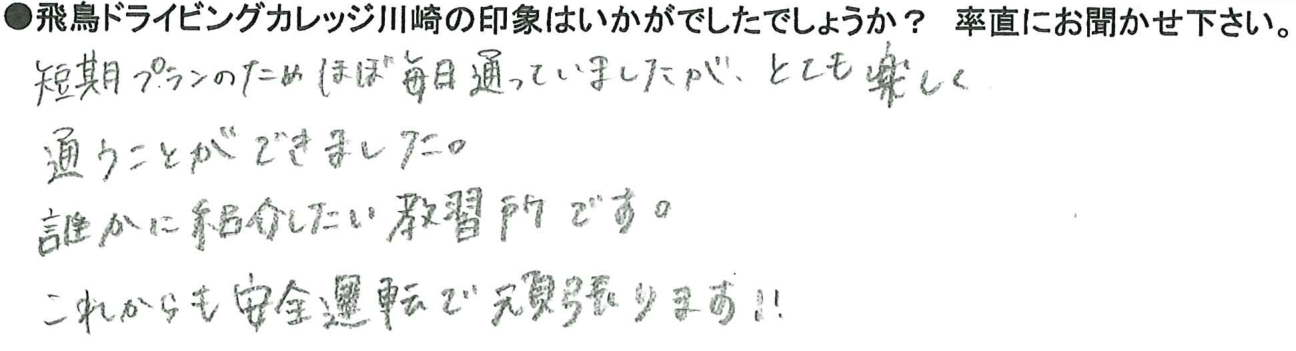 ●飛鳥ドライビングカレッジ川崎の印象はいかがでしたでしょうか？　率直にお聞かせ下さい。
短期プランのためほぼ毎日通っていましたが、とても楽しく
通うことができました。
誰かに紹介したい教習所です。
これからも安全運転で頑張ります!!